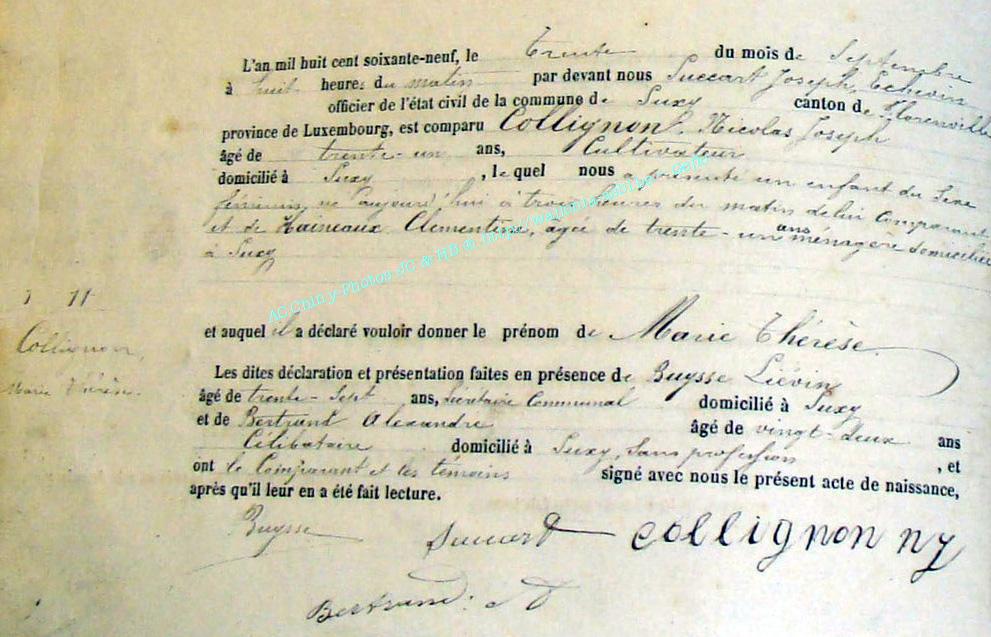 L'an mil huit cent soixante-neuf, le trente du mois de Septembre
à huit heures du matin par devant nous Succart Joseph, Echevin
officier de l'état civil de la commune de Suxy canton de Florenville
province de Luxembourg, est comparu Collignon Nicolas Joseph
âgé de trente-un ans, Cultivateur
domicilié à Suxy, lequel nous a présenté un enfant du sexe
féminin, né aujourd'hui à trois heures du matin de lui comparant
et de Haineaux Clémentine, âgée de trente-un ans ménagère domiciliée
à Suxy
11
et auquel il a déclaré vouloir donner le prénom de Marie Thérèse.
Collignon,
Marie Thérèse.
Les dites déclaration et présentation faites en présence de Buysse Liévin
âgé de trente-sept ans, Secrétaire Communal domicilié à Suxy
et de Bertrand Alexandre âgé de vingt-deux ans
Célibataire domicilié à Suxy, sans profession, et
ont le Comparant et les témoins signé avec nous le présent acte de naissance,
après qu'il leur en a été fait lecture.
Buysse Succart Collignon nj
Bertrand. A
AC Chiny-Photos JC & HD &